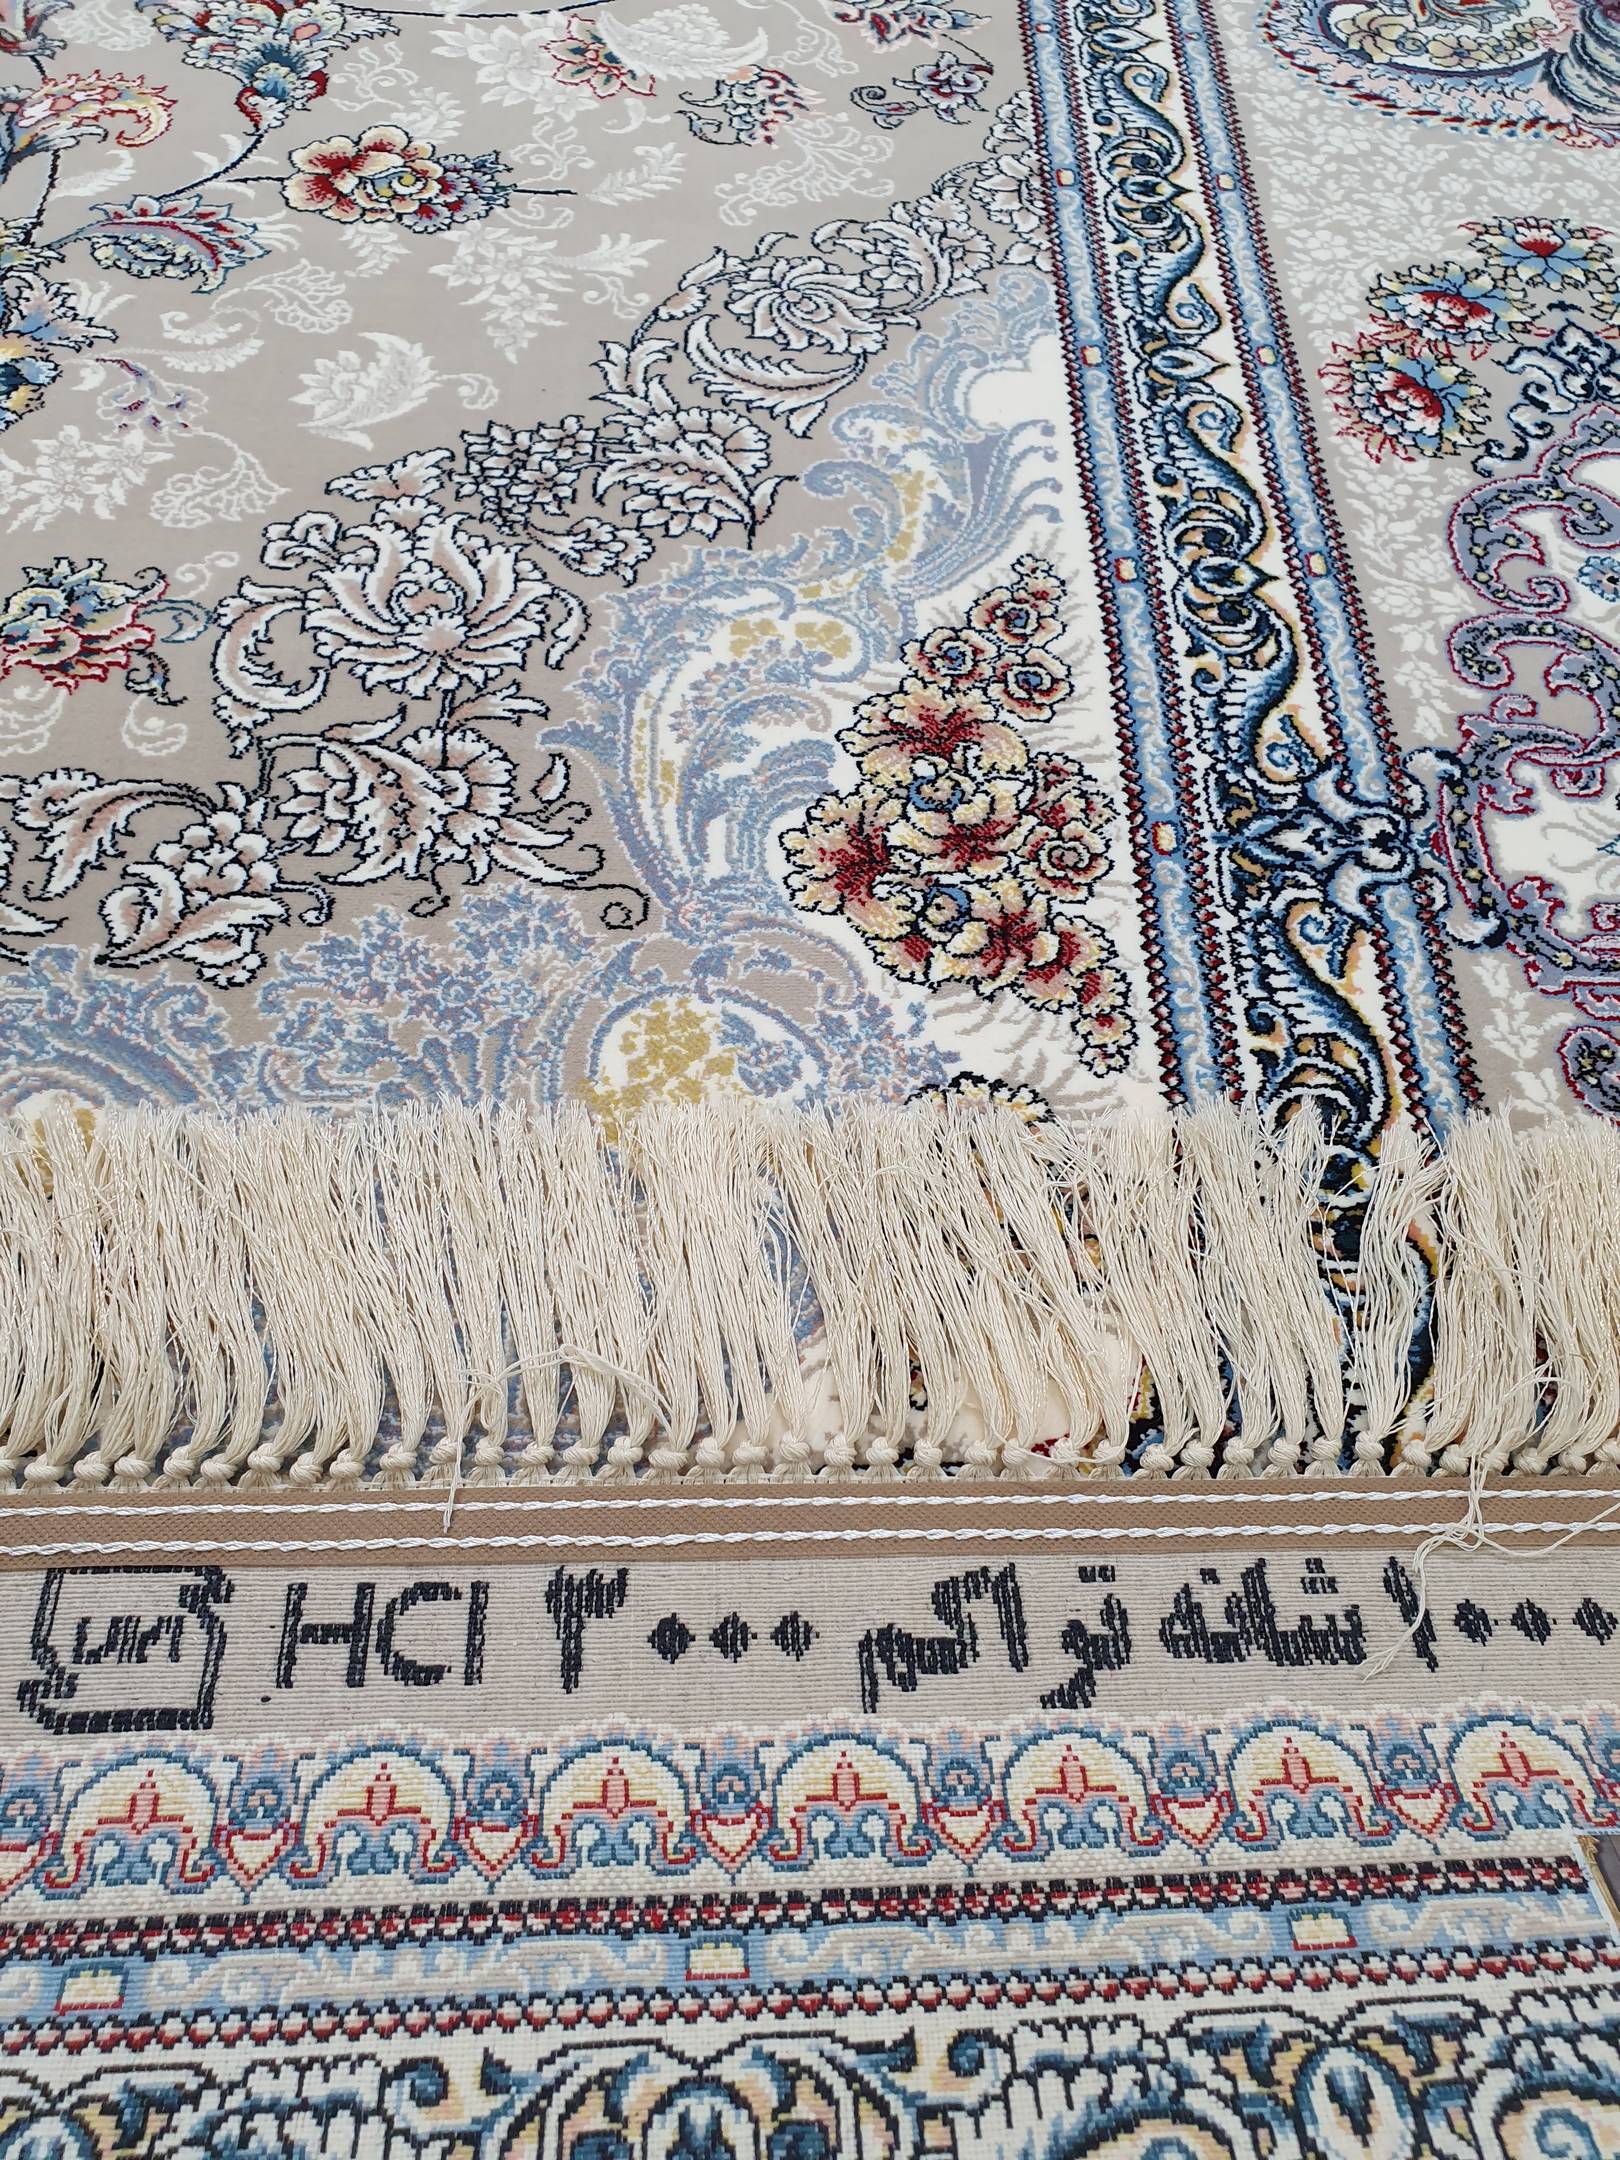 ۱۰۰۰ شانه تراکم ۳۰۰۰ HCI